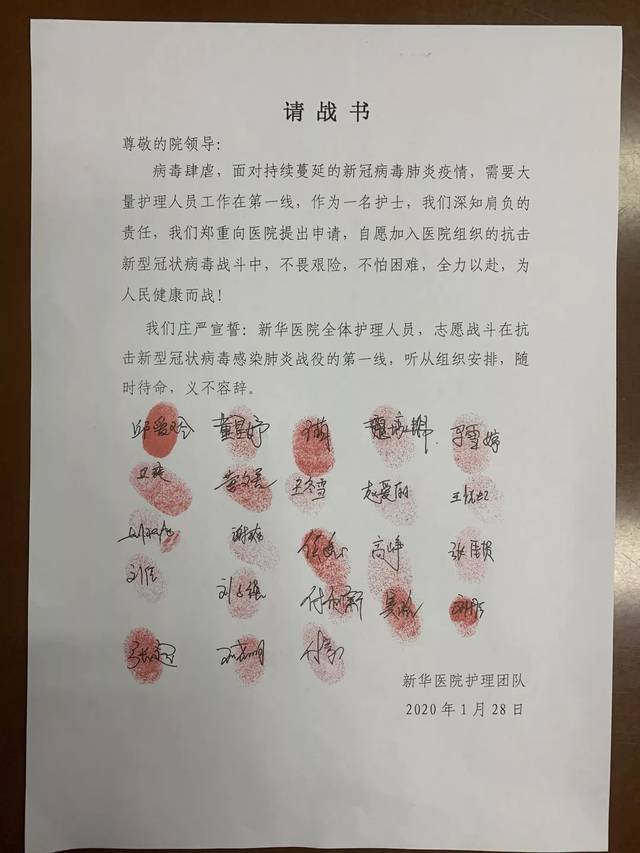 请战书
尊敬的院领导：
病毒肆虐，面对持续蔓延的新冠病毒肺炎疫情，需要大
量护理人员工作在第一线，作为一名护士，我们深知肩负的
责任，我们郑重向医院提出申请，自愿加入医院组织的抗击
新型冠状病毒战斗中，不畏艰险，不怕困难，全力以赴，为
人民健康而战！
我们庄严宣誓：新华医院全体护理人员，志愿战斗在抗
击新型冠状病毒感染肺炎战役的第一线，听从组织安排，随
时待命，义不容辞。
王冬雪 赵爱丽
高峥
刘佳
新华医院护理团队
2020年1月28日